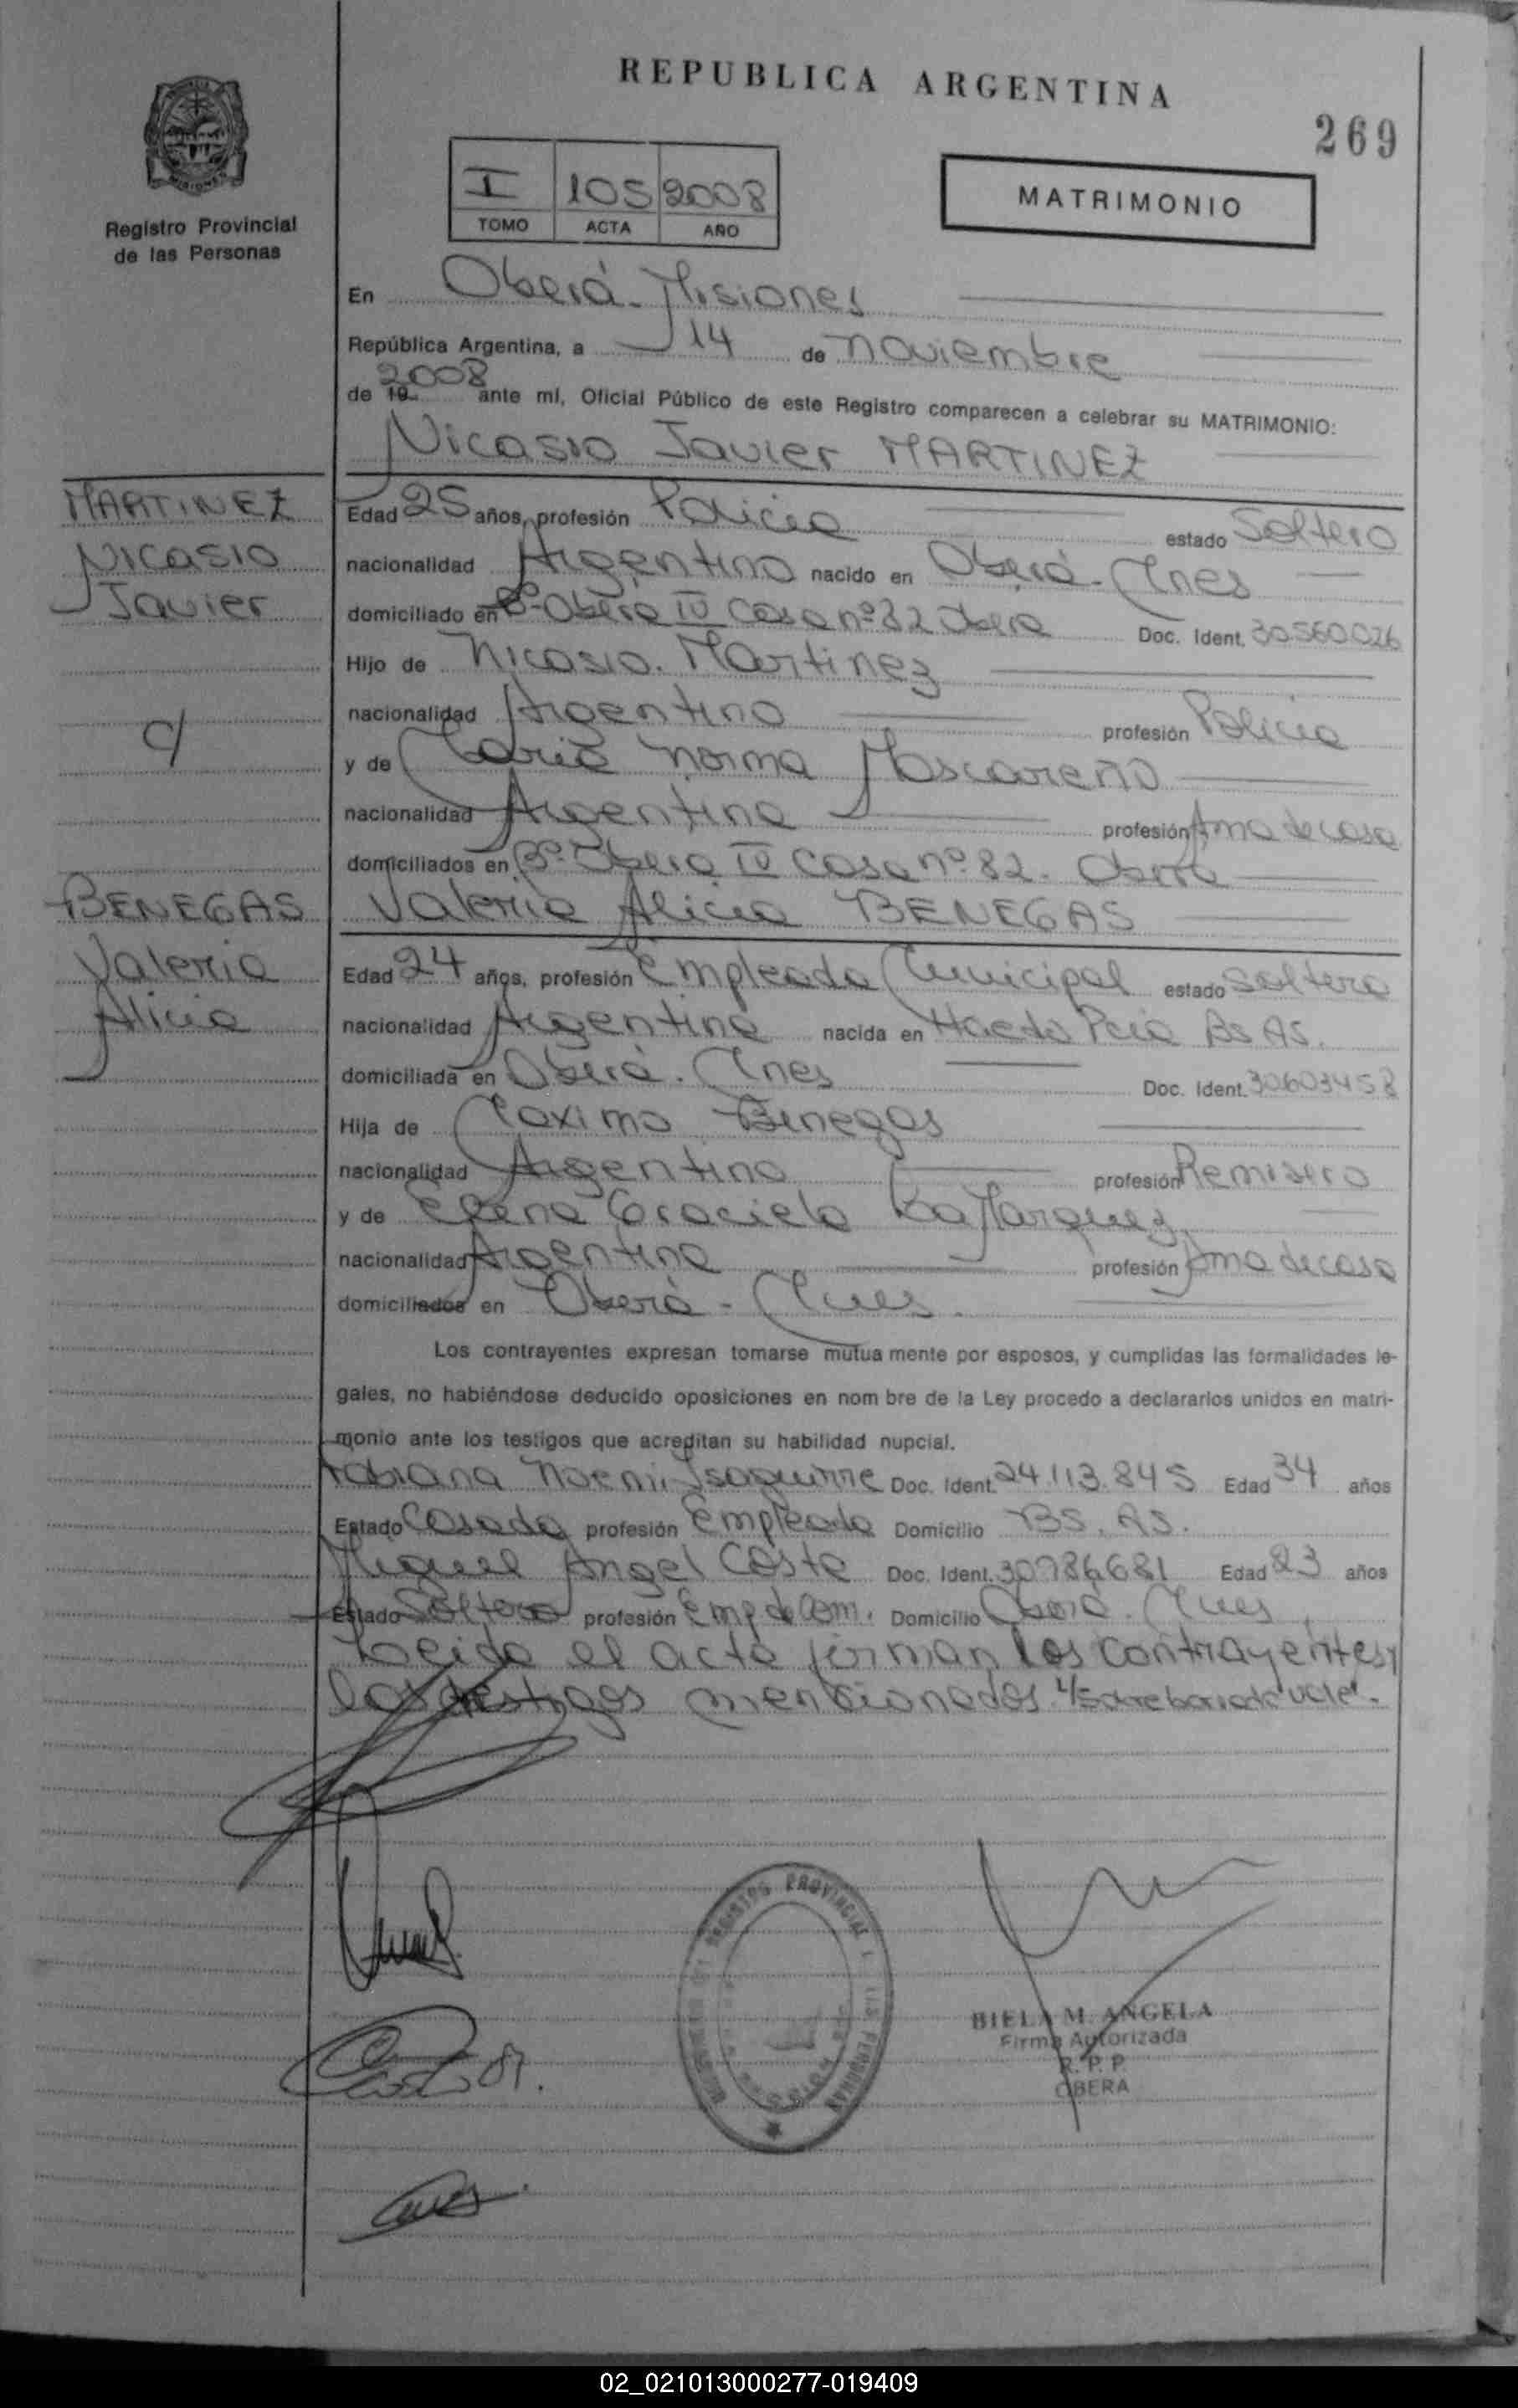 REPUBLICA ARGENTINA
269
I 105 2008
TOMO ACTA AÑO
MATRIMONIO
MISIONES
Registro Provincial
de las Personas
En Oberá - Misiones
República Argentina, a 14 de noviembre
de 19 2008 ante mí, Oficial Público de este Registro comparecen a celebrar su MATRIMONIO:
Nicasio Javier MARTINEZ
MARTINEZ
Nicasio
Javier
c/
BENEGAS
Valeria
Alicia
Edad 25 años, profesión Policia estado Soltero
nacionalidad Argentino nacido en Oberá - Mnes
domiciliado en Bº Oberá IV Casa nº 82 Oberá Doc. Ident. 30560026
Hijo de Nicasio Martinez
nacionalidad Argentino profesión Policia
y de Maria Norma Mascareño
nacionalidad Argentina profesión Ama de casa
domiciliados en Bº Oberá IV Casa nº 82. Oberá
Valeria Alicia BENEGAS
Edad 24 años, profesión Empleada Municipal estado Soltera
nacionalidad Argentina nacida en Haedo Pcia Bs As.
domiciliada en Oberá. Mnes Doc. Ident. 30603458
Hija de Maximo Benegas
nacionalidad Argentino profesión Remisero
y de Elena Graciela Marquez
nacionalidad Argentina profesión Ama de casa
domiciliados en Oberá - Mnes.
Los contrayentes expresan tomarse mutua mente por esposos, y cumplidas las formalidades le-
gales, no habiéndose deducido oposiciones en nom bre de la Ley procedo a declararlos unidos en matri-
monio ante los testigos que acreditan su habilidad nupcial.
Fabiana Noemi Isaguirre Doc. Ident. 24.113.845 Edad 34 años
Estado Casada profesión Empleada Domicilio BS. AS.
Miguel Angel Costa Doc. Ident. 30786681 Edad 23 años
Estado Soltero profesión Emp de Com. Domicilio Oberá. Mnes
Leida el acta firman los contrayentes y
los testigos mencionados. s/ borrado "vale".
BIELA M. ANGELA
Firma Autorizada
R. P. P.
OBERA
02_021013000277-019409